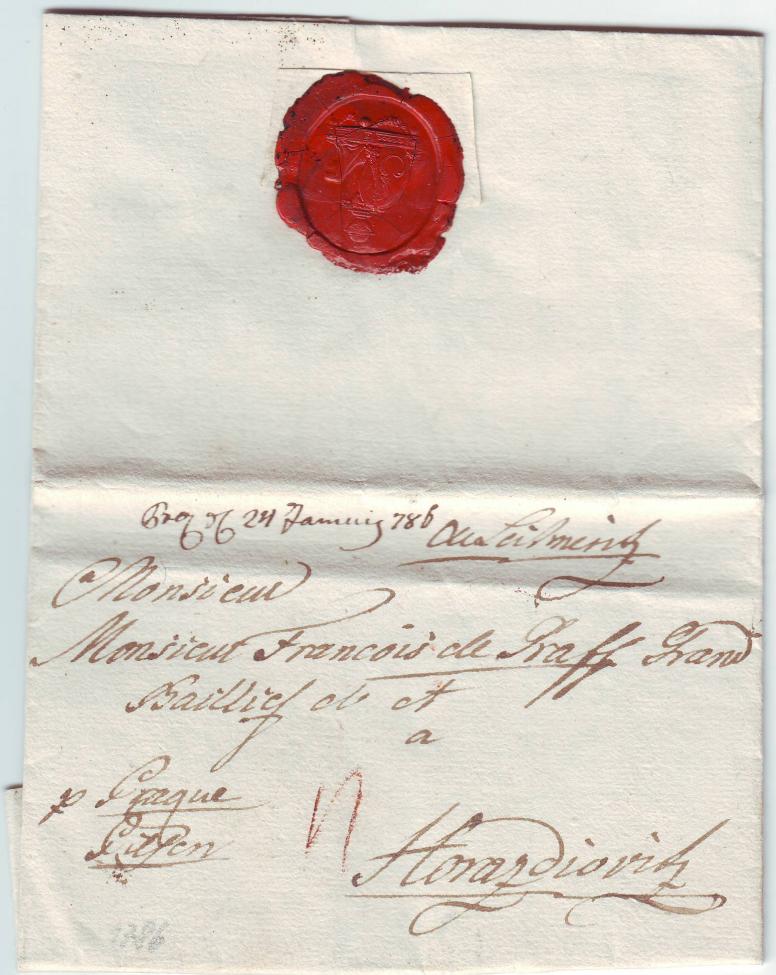 24 786
de Leitmeritz
Monsieur
Monsieur Francois de Graff Grand
Baillif de et
a
p Prague
Pilsen
Horazdiovitz
1786